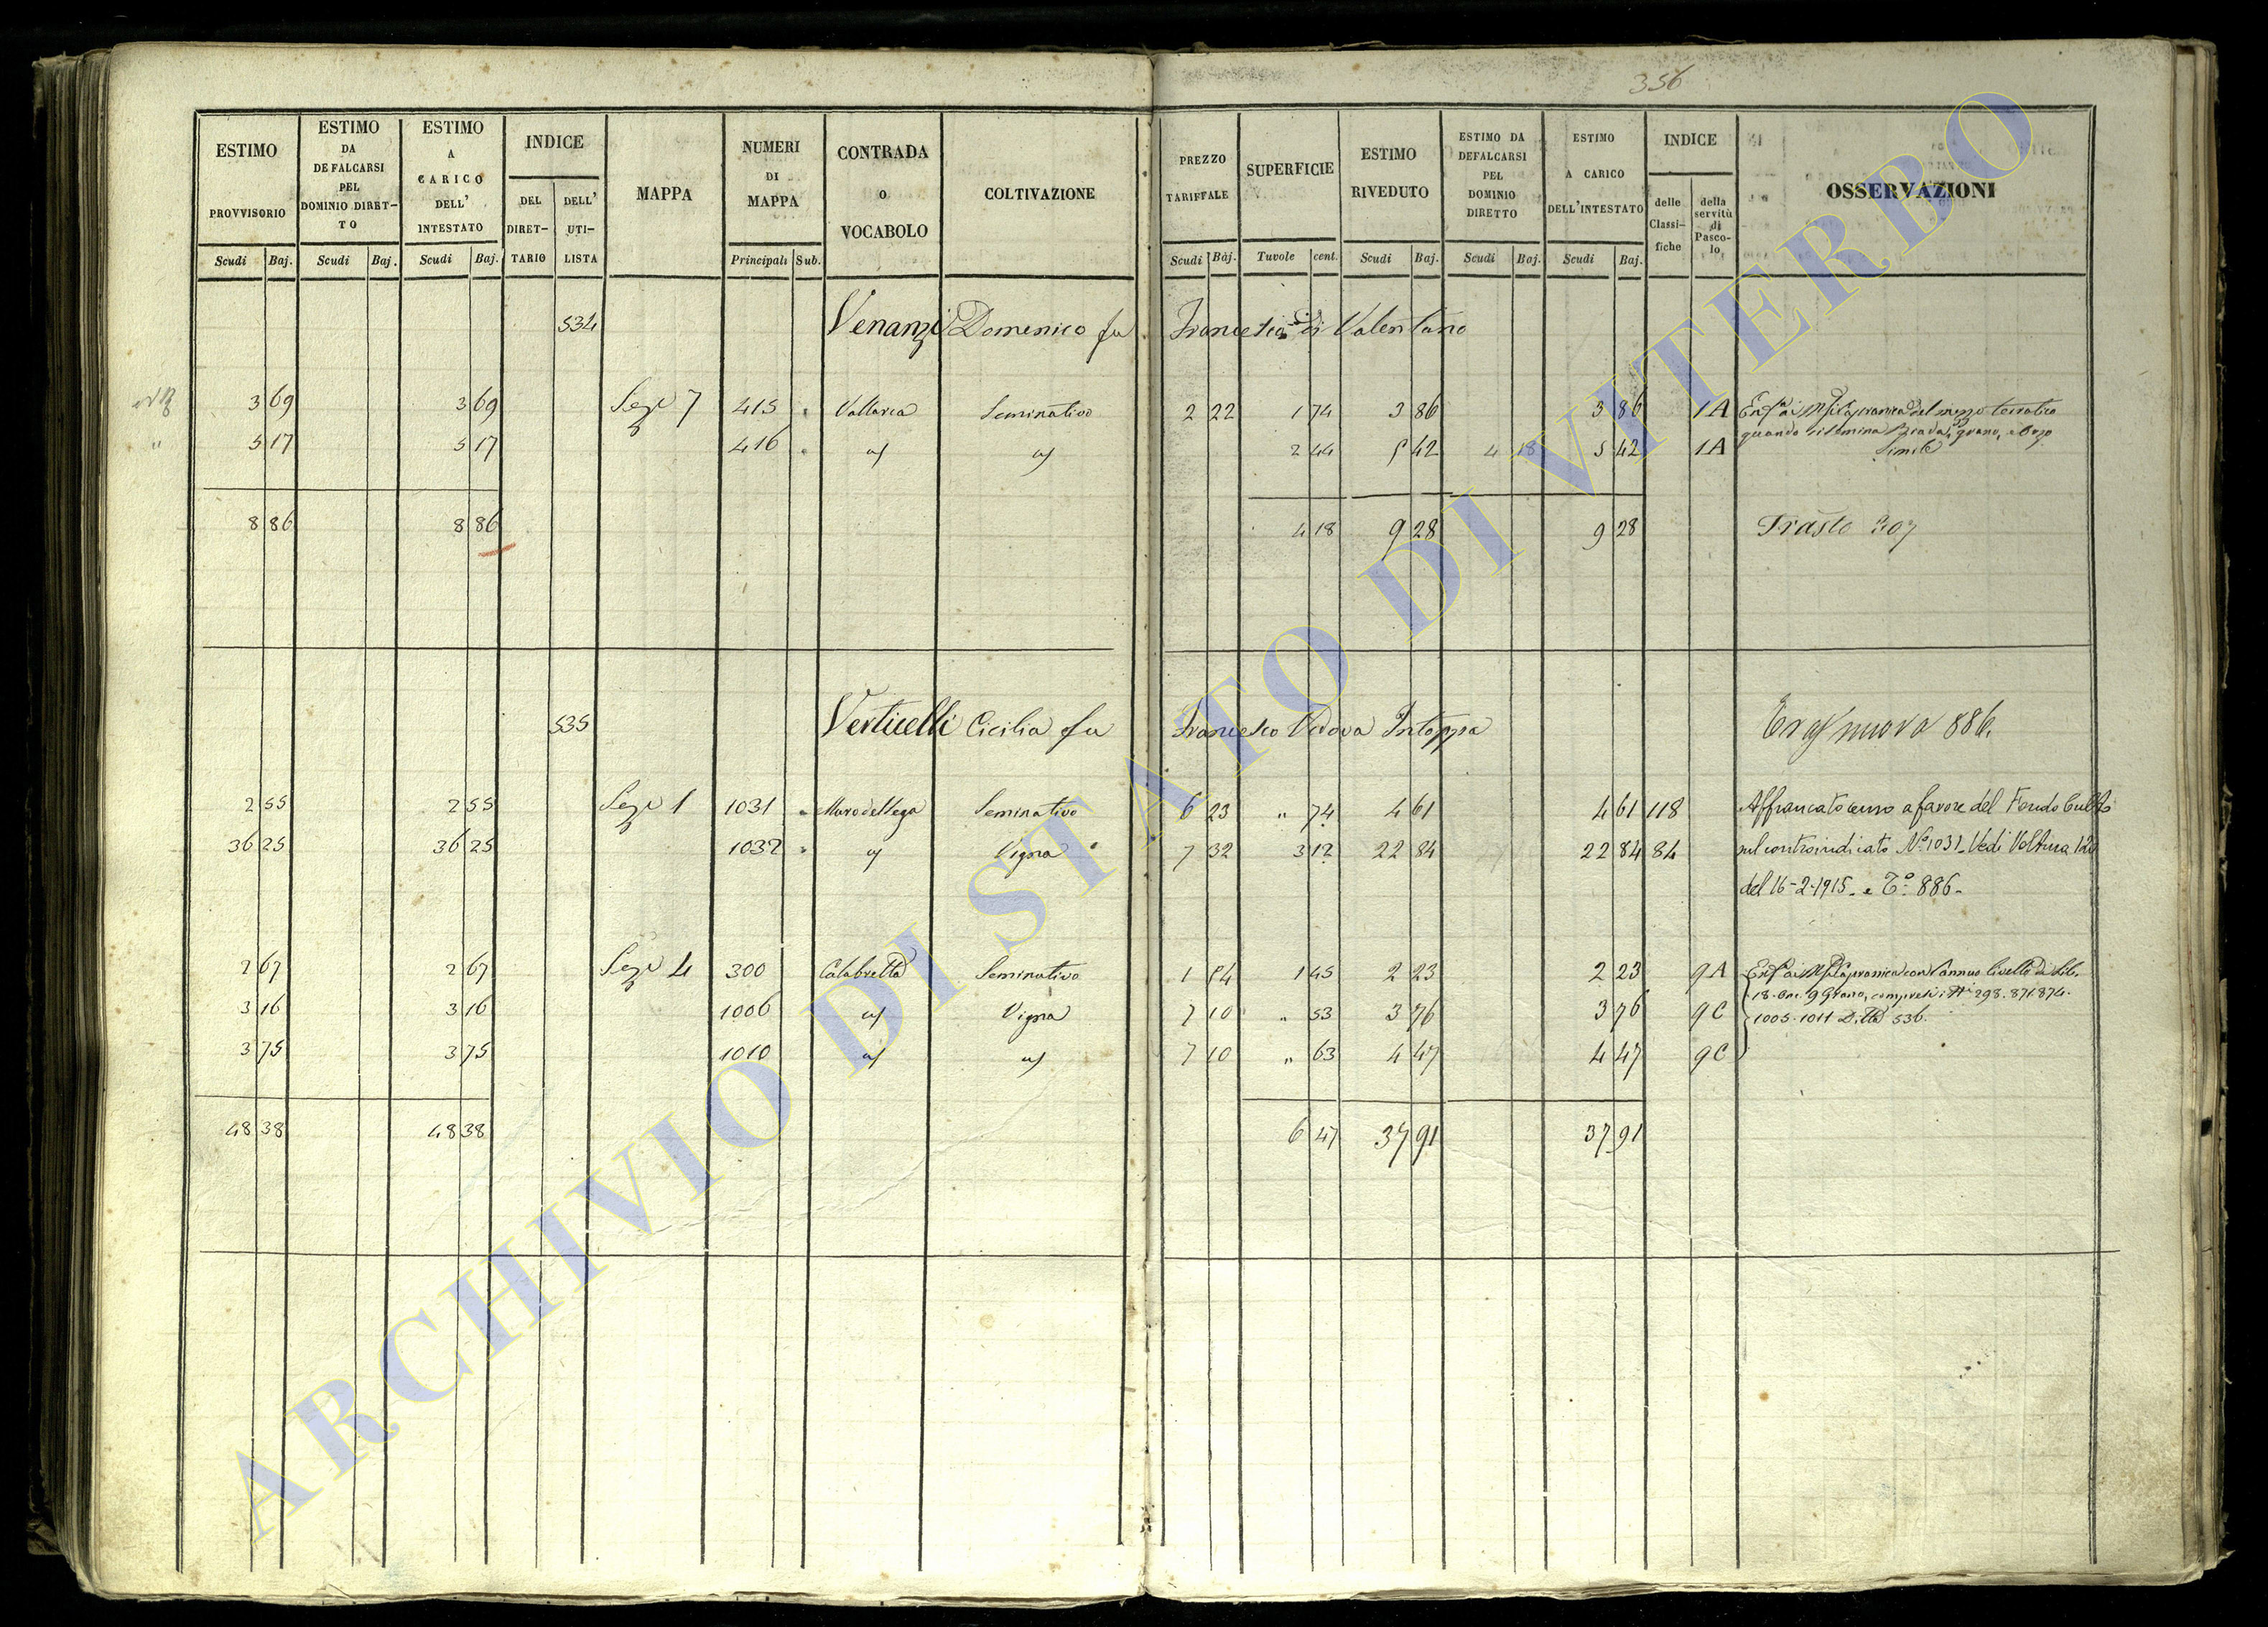 356
ESTIMO PROVVISORIO | ESTIMO DA DEFALCARSI PEL DOMINIO DIRET-TO | ESTIMO A CARICO DELL' INTESTATO | INDICE DEL DIRET-TARIO | DELL' UTI-LISTA | MAPPA | NUMERI DI MAPPA | CONTRADA O VOCABOLO | COLTIVAZIONE | PREZZO TARIFFALE | SUPERFICIE | ESTIMO RIVEDUTO | ESTIMO DA DEFALCARSI PEL DOMINIO DIRETTO | ESTIMO A CARICO DELL'INTESTATO | INDICE delle Classi-fiche | della servitù di Pasco-lo | OSSERVAZIONI
Scudi Baj. | Scudi Baj. | Scudi Baj. | Principali Sub. | Scudi Baj. | Tavole cent. | Scudi Baj. | Scudi Baj. | Scudi Baj.
534 Venanzi Domenico fu Francesco di Valentano
3 69 | 3 69 | Sez.e 7 | 415 | Vallarca | Seminativo | 2 22 | 1 74 | 3 86 | 3 86 | 1A | del terratico
" 5 17 | 5 17 | 416 | " | " | 2 44 | 5 42 | 4 18 | 5 42 | 1A | quando si semina Biada, grano, e Orzo
Simile
8 86 | 8 86 | 4 18 | 9 28 | 9 28 | Trasto 307
535 Verticelli Cicilia fu Francesco Vedova Intoppa | nuova 886.
2 55 | 2 55 | Sez.e 1 | 1031 | Muro del lega | Seminativo | 6 23 | " 74 | 4 61 | 4 61 | 118 | Affrancato censo a favore del Fondo Culto
36 25 | 36 25 | 1032 | " | Vigna | 7 32 | 3 12 | 22 84 | 22 84 | 84 | sul controindicato No 1031. Vedi Voltura 120
del 16-2-1915. e To. 886-
2 67 | 2 67 | Sez.e 4 | 300 | Calabrella | Seminativo | 1 54 | 1 45 | 2 23 | 2 23 | 9A | con l'annuo livello di Lib.
3 16 | 3 16 | 1006 | " | Vigna | 7 10 | " 53 | 3 76 | 3 76 | 9C | 18. On. 9 Grano, compresi i Ni 298. 871. 874.
3 75 | 3 75 | 1010 | " | " | 7 10 | " 63 | 4 47 | 4 47 | 9C | 1005. 1011 Ditta 536.
48 38 | 48 38 | 6 47 | 37 91 | 37 91
ARCHIVIO DI STATO DI VITERBO